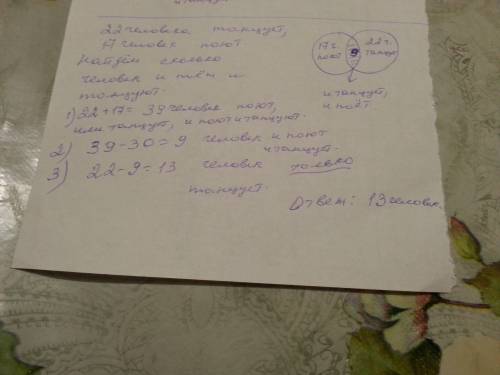 и танцует
22 человека танцует,
17 человек поют
Найдём сколько
человек и поёт и
танцуют.
17 ч.
поют
9
22 ч.
танцует
и танцует,
и поёт
1) 22+17= 39 человек поют,
или танцует, и поют и танцуют.
2) 39-30=9 человек и поют
и танцует.
3) 22-9=13 человек только
танцует.
Ответ: 13 человек.